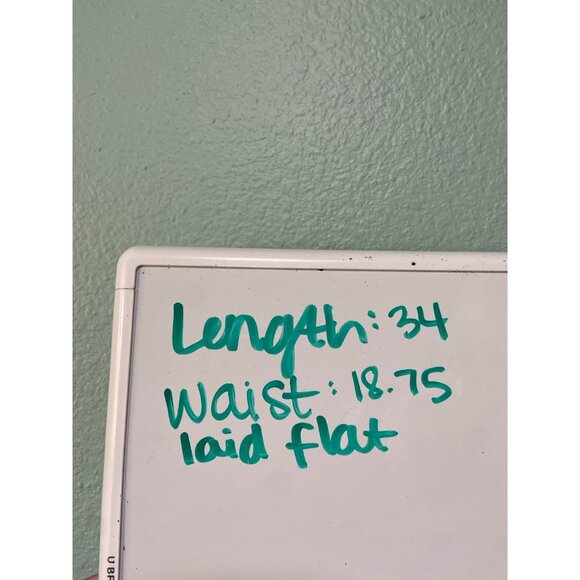 Length: 34
waist: 18.75
laid flat
U BR